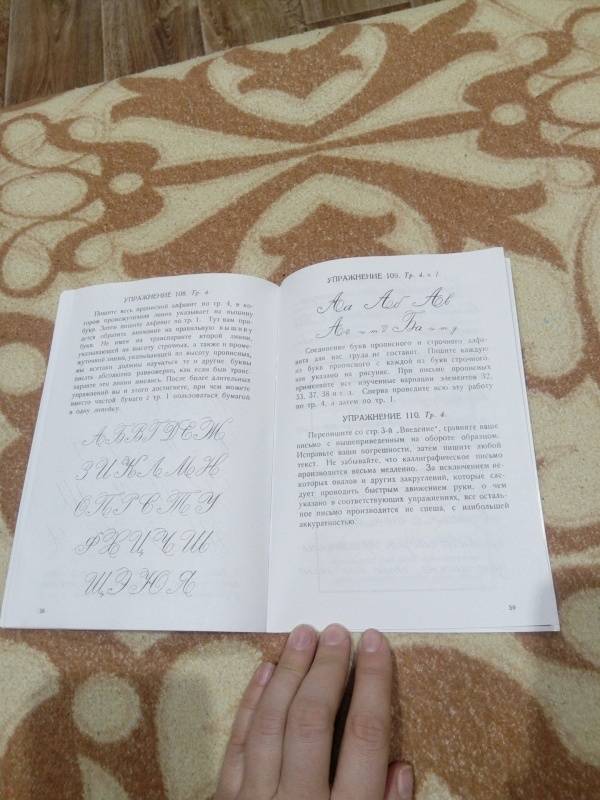 УПРАЖНЕНИЕ 108. Тр. 4.
Пишите весь прописной алфавит по тр. 4, в ко-
тором промежуточная линия указывает на вышину
букв. Затем пишите алфавит по тр. 1. Тут вам при-
дется обратить внимание на правильную вышину
букв. Не имея на транспаранте второй линии,
указывающей на высоту строчных, а также и проме-
жуточной линии, указывающей до высоту прописных,
мы всетаки должны научиться те и другие буквы
писать абсолютно равномерно, как если бы на транс-
паранте эти линии имелись. После более длительных
упражнений вы и этого достигнете, при чем можете
вместо чистой бумаги с тр. 1 пользоваться бумагой
в одну линейку.
А Б Б В Г Д Е Ж
З И К Л М Н
О П Р С Т У
Ф Х Ц Ч Ш
Щ Э Ю Я
38
УПРАЖНЕНИЕ 109. Тр. 4. и 1.
Аа Аб Ав
Аг Ба
Соединение букв прописного и строчного алфа-
вита для вас труда не составит. Пишите каждую
из букв прописного с каждой из букв строчного,
как указано на рисунке. При письме прописных
применяйте все изученные вариации элементов 32,
33, 37, 38 и т. д. Сперва проведите всю эту работу
по тр. 4, а затем по тр. 1.
УПРАЖНЕНИЕ 110. Тр. 4.
Перепишите со стр. 3-й „Введение“, сравните ваше
письмо с вышеприведенным на обороте образцом.
Исправьте ваши погрешности, затем пишите любой
текст. Не забывайте, что каллиграфическое письмо
производится весьма медленно. За исключением не-
которых овалов и других закруглений, которые сле-
дует проводить быстрым движением руки, о чем
указано в соответствующих упражнениях, все осталь-
ное письмо производится не спеша, с наибольшей
аккуратностью.
59